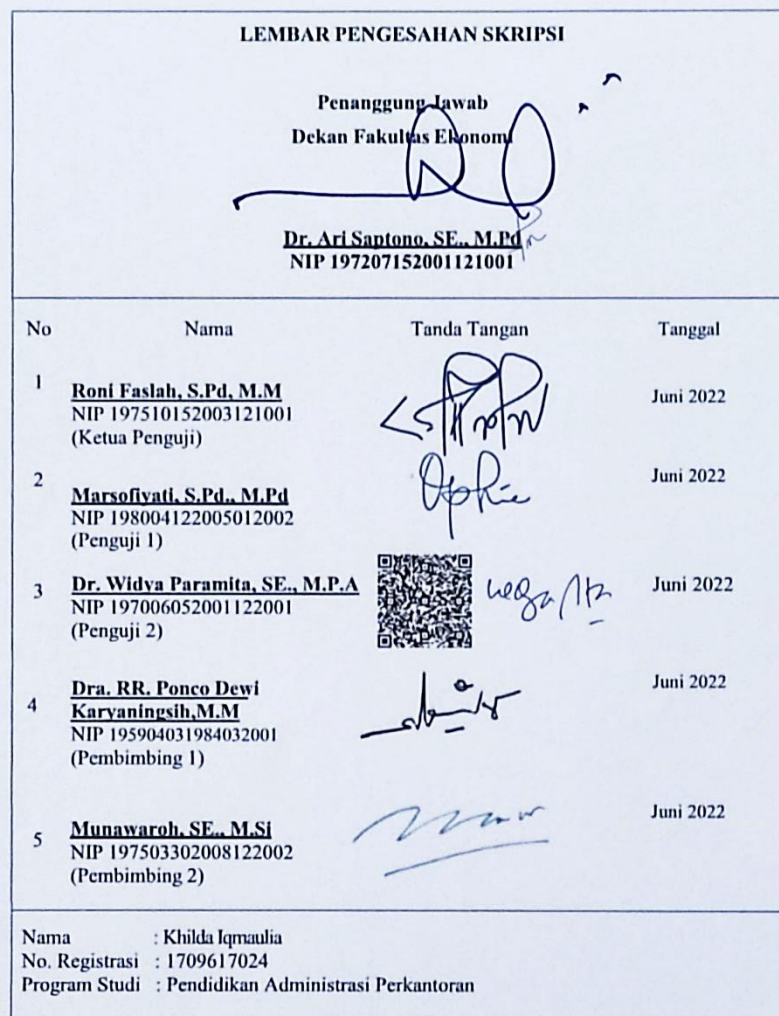 LEMBAR PENGESAHAN SKRIPSI
Penanggung Jawab
Dekan Fakultas Ekonomi
Dr. Ari Saptono, SE., M.Pd
NIP 197207152001121001
No Nama Tanda Tangan Tanggal
1 Roni Faslah, S.Pd, M.M Juni 2022
NIP 197510152003121001
(Ketua Penguji)
2 Marsofiyati, S.Pd., M.Pd Juni 2022
NIP 198004122005012002
(Penguji 1)
3 Dr. Widya Paramita, SE., M.P.A Juni 2022
NIP 197006052001122001
(Penguji 2)
Dra. RR. Ponco Dewi Juni 2022
4 Karyaningsih,M.M
NIP 195904031984032001
(Pembimbing 1)
5 Munawaroh, SE., M.Si Juni 2022
NIP 197503302008122002
(Pembimbing 2)
Nama : Khilda Iqmaulia
No. Registrasi : 1709617024
Program Studi : Pendidikan Administrasi Perkantoran